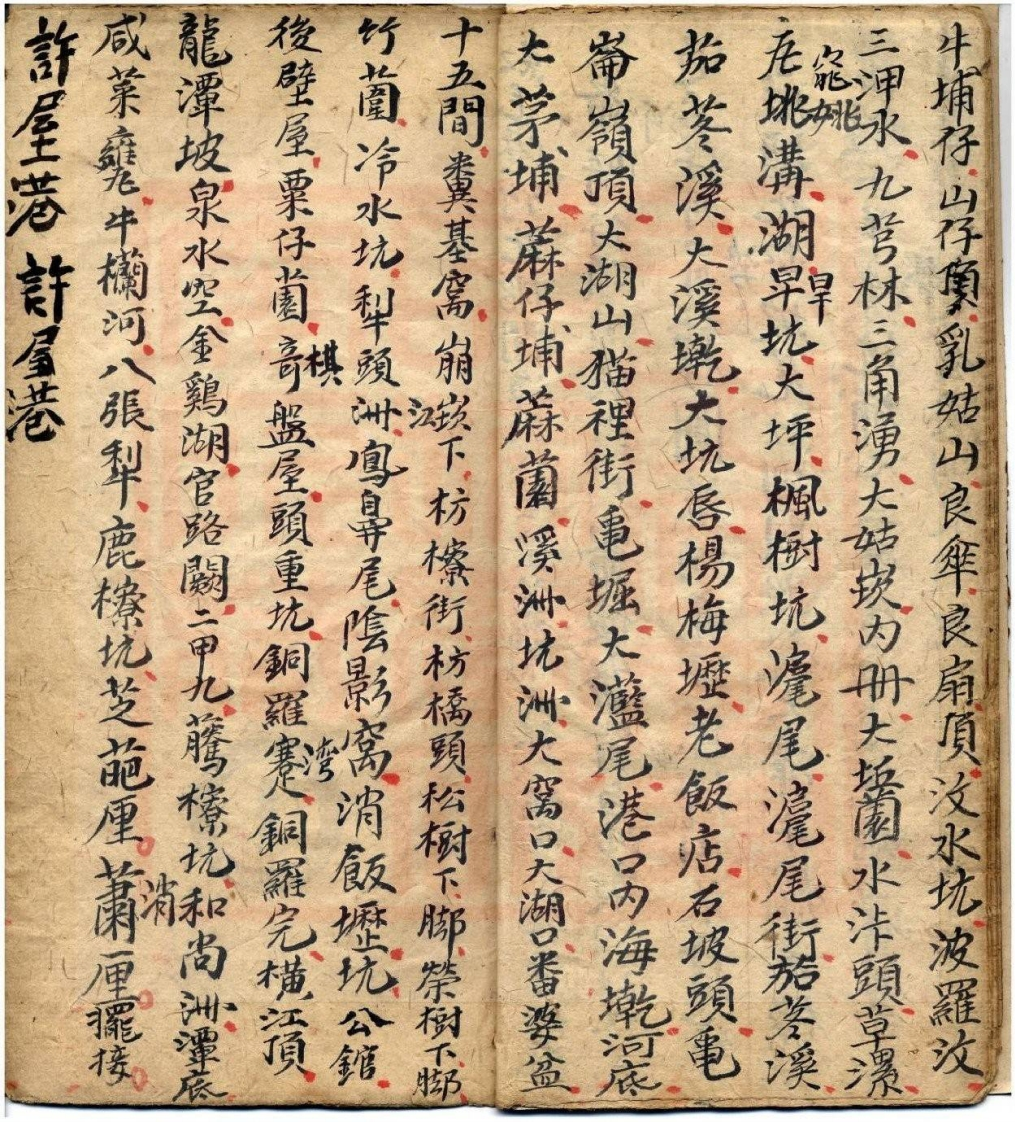 牛埔仔山仔頂乳姑山良傘良扇頂汶水坑波羅汶
三洽水九芎林三角湧大姑崁内冊大坵園水汴頭草漯
龍姚
庅垗溝湖旱坑大坪楓樹坑滬尾滬尾街茄苳溪
旱
茄苳溪大溪墘大坑唇楊梅壢老飯店石坡頭亀
崙嶺頂大湖山猫裡街亀堀大灆尾港口内海墘河底
大茅埔蔴仔埔蔴園溪洲坑洲大窩口大湖口番婆盆
十五間糞基窩崩崁下枋橑街枋橋頭松樹下脚榮樹下脚
江
竹蘭冷水坑犁頭洲鳳鼻尾陰影窩消飯壢坑公館
後壁屋粟仔園哥盤屋頭重坑銅羅蹇銅羅完橫江頂
棋
湾
龍潭坡泉水空金鷄湖官路闕二甲九藤橑坑和尚洲潭底
咸菜甕牛欄河八張犁鹿橑坑芝葩厘蕭厘擺接
消
許屋港 許屋港